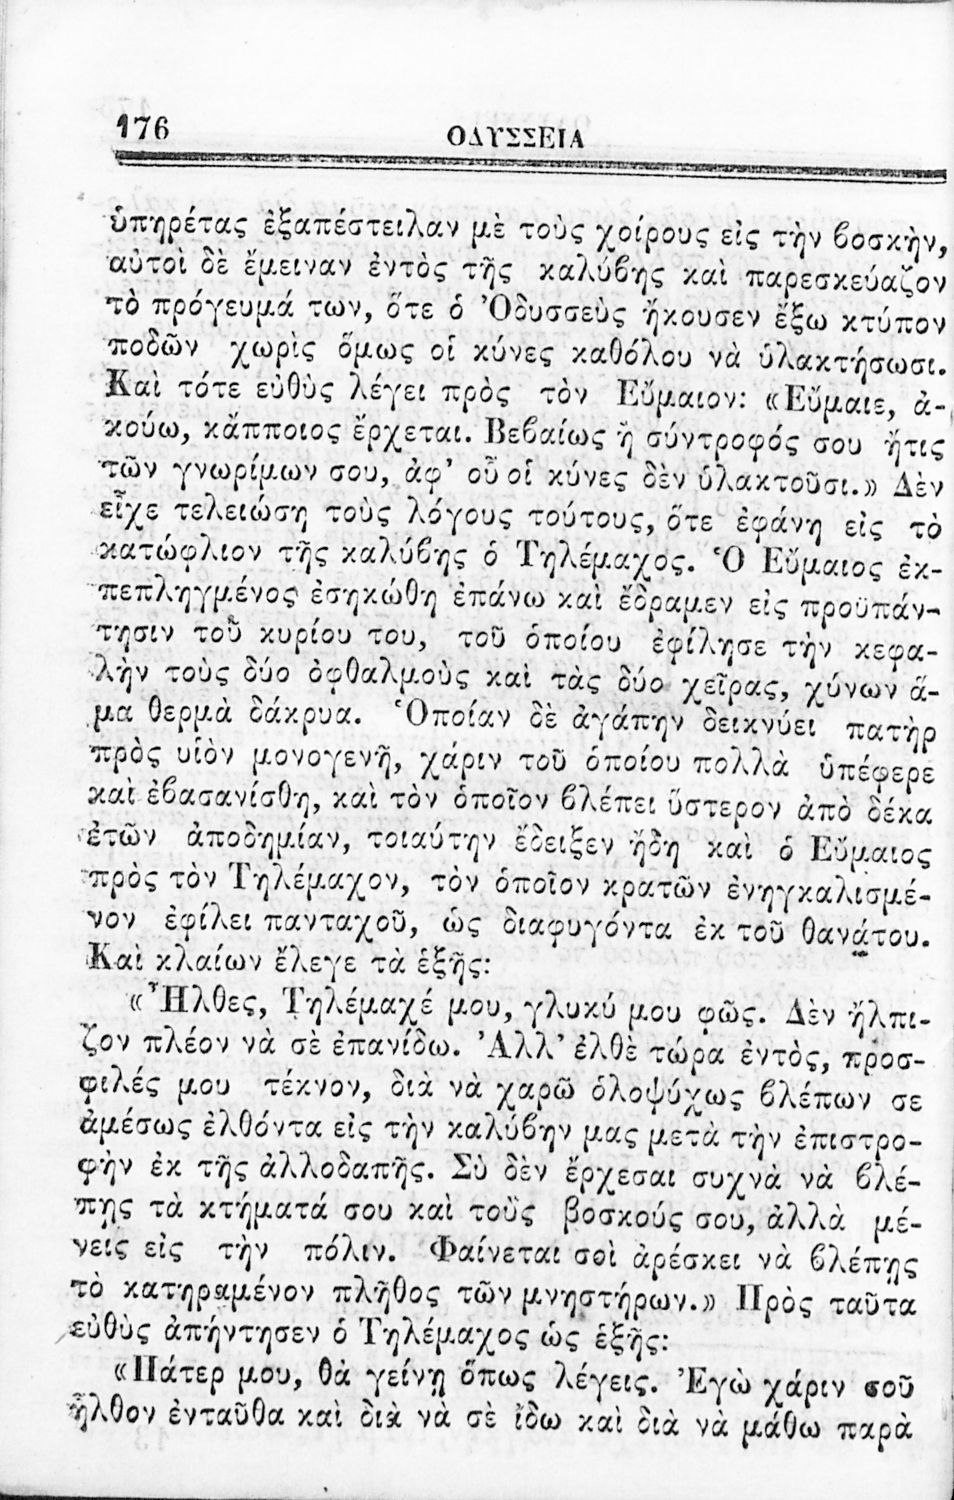 176
ΟΔΥΣΣΕΙΑ
ὑπηρέτας ἐξαπέστειλαν μὲ τοὺς χοίρους εἰς τὴν βοσκὴν,
αὐτοὶ δὲ ἔμειναν ἐντὸς τῆς καλύβης καὶ παρεσκεύαζον
τὸ πρόγευμά των, ὅτε ὁ Ὀδυσσεὺς ἤκουσεν ἔξω κτύπον
ποδῶν χωρὶς ὅμως οἱ κύνες καθόλου νὰ ὑλακτήσωσι.
Καὶ τότε εὐθὺς λέγει πρὸς τὸν Εὔμαιον: «Εὔμαιε, ἀ-
κούω, κἄπποιος ἔρχεται. Βεβαίως ἢ σύντροφός σου ἤτις
τῶν γνωρίμων σου, ἀφ’ οὗ οἱ κύνες δὲν ὑλακτοῦσι.» Δὲν
εἶχε τελειώσῃ τοὺς λόγους τούτους, ὅτε ἐφάνη εἰς τὸ
κατώφλιον τῆς καλύβης ὁ Τηλέμαχος. Ὁ Εὔμαιος ἐκ-
πεπληγμένος ἐσηκώθη ἐπάνω καὶ ἔδραμεν εἰς προϋπάν-
τησιν τοῦ κυρίου του, τοῦ ὁποίου ἐφίλησε τὴν κεφα-
λὴν τοὺς δύο ὀφθαλμοὺς καὶ τὰς δύο χεῖρας, χύνων ἅ-
μα θερμὰ δάκρυα. Ὁποίαν δὲ ἀγάπην δεικνύει πατὴρ
πρὸς υἱὸν μονογενῆ, χάριν τοῦ ὁποίου πολλὰ ὑπέφερε
καὶ ἐβασανίσθη, καὶ τὸν ὁποῖον βλέπει ὕστερον ἀπὸ δέκα
ἐτῶν ἀποδημίαν, τοιαύτην ἔδειξεν ἤδη καὶ ὁ Εὔμαιος
πρὸς τὸν Τηλέμαχον, τὸν ὁποῖον κρατῶν ἐνηγκαλισμέ-
νον ἐφίλει πανταχοῦ, ὡς διαφυγόντα ἐκ τοῦ θανάτου.
Καὶ κλαίων ἔλεγε τὰ ἑξῆς:
«Ἦλθες, Τηλέμαχέ μου, γλυκύ μου φῶς. Δὲν ἤλπι-
ζον πλέον νὰ σὲ ἐπανίδω. Ἀλλ’ ἐλθὲ τώρα ἐντὸς, προσ-
φιλές μου τέκνον, διὰ νὰ χαρῶ ὁλοψύχως βλέπων σε
ἀμέσως ἐλθόντα εἰς τὴν καλύβην μας μετὰ τὴν ἐπιστρο-
φὴν ἐκ τῆς ἀλλοδαπῆς. Σὺ δὲν ἔρχεσαι συχνὰ νὰ βλέ-
πῃς τὰ κτήματά σου καὶ τοὺς βοσκούς σου, ἀλλὰ μέ-
νεις εἰς τὴν πόλιν. Φαίνεται σοὶ ἀρέσκει νὰ βλέπῃς
τὸ κατηραμένον πλῆθος τῶν μνηστήρων.» Πρὸς ταῦτα
εὐθὺς ἀπήντησεν ὁ Τηλέμαχος ὡς ἑξῆς:
«Πάτερ μου, θὰ γείνῃ ὅπως λέγεις. Ἐγὼ χάριν σοῦ
ἦλθον ἐνταῦθα καὶ διὰ νὰ σὲ ἴδω καὶ διὰ νὰ μάθω παρὰ